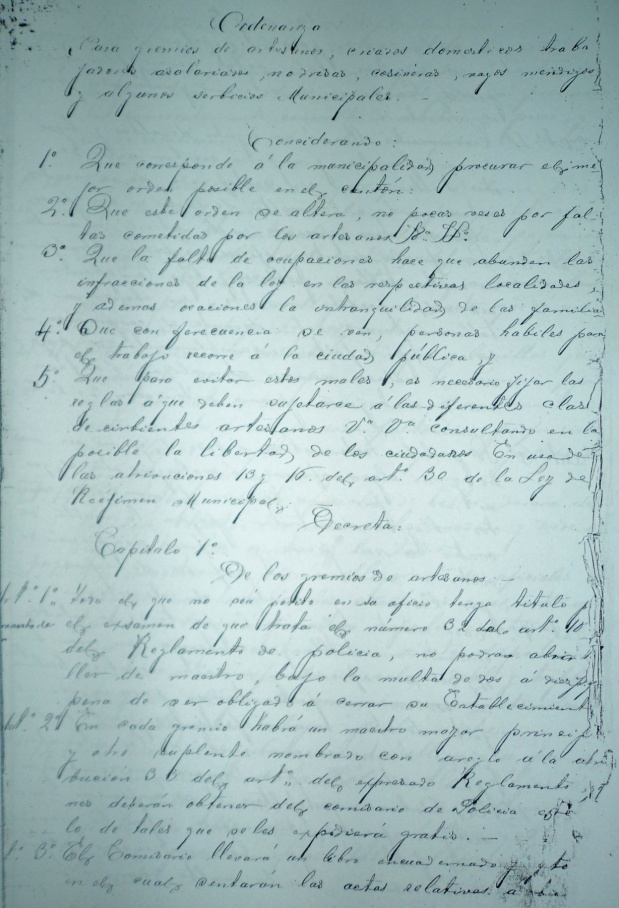 Ordenanza
Para gremios de artesanos, criados domesticos traba
jadores asalariados, nodrisas, cosineras, vagos mendigos
y algunos serbicios Municipales. —
Conciderando:
1º Que corresponde á la municipalidad procurar el me
jor orden posible en el canton:
2º Que este orden se altera, no pocas veses por fal-
tas cometidas por los artesanos
3º Que la falta de ocupaciones hace que abunden las
infracciones de la ley en las respectivas localidades,
y ademas ocaciones la intranquilidad de las familias
4º Que con frecuencia se ven, personas habiles para
el trabajo recorre á la ciudad pública, y
5º Que para evitar estos males, es necesario fijar las
reglas á que deben sujetarse á las diferentes clas
de sirbientes artesanos Vª Vª consultando en lo
posible la libertad de los ciudadanos En uso de
las atribuciones 13 y 16. del artº 30 de la Ley de
Regimen Municipal
Decreta:
Capitulo 1º
De los gremios de artesanos. —
Artº 1º Todo el que no sea perito en su oficio tenga titulo
el examen de que trata el número 32 del artº 10
del Reglamento de policia, no podrá abrir t
ller de maestro, bajo la multa de dos á diez p
pena de ser obligado á cerrar su Establecimient
Artº 2º En cada gremio habrá un maestro mayor princip
y otro suplente nombrado con areglo á la atri
bución 30 del artº del expresado Reglamento,
nes deberán obtener del comisario de Policia
lo de tales que se les expidierá gratis. —
Artº 3º El Comisario llevará un libro encuadernado y
en el cual sentarán las actas relativas á